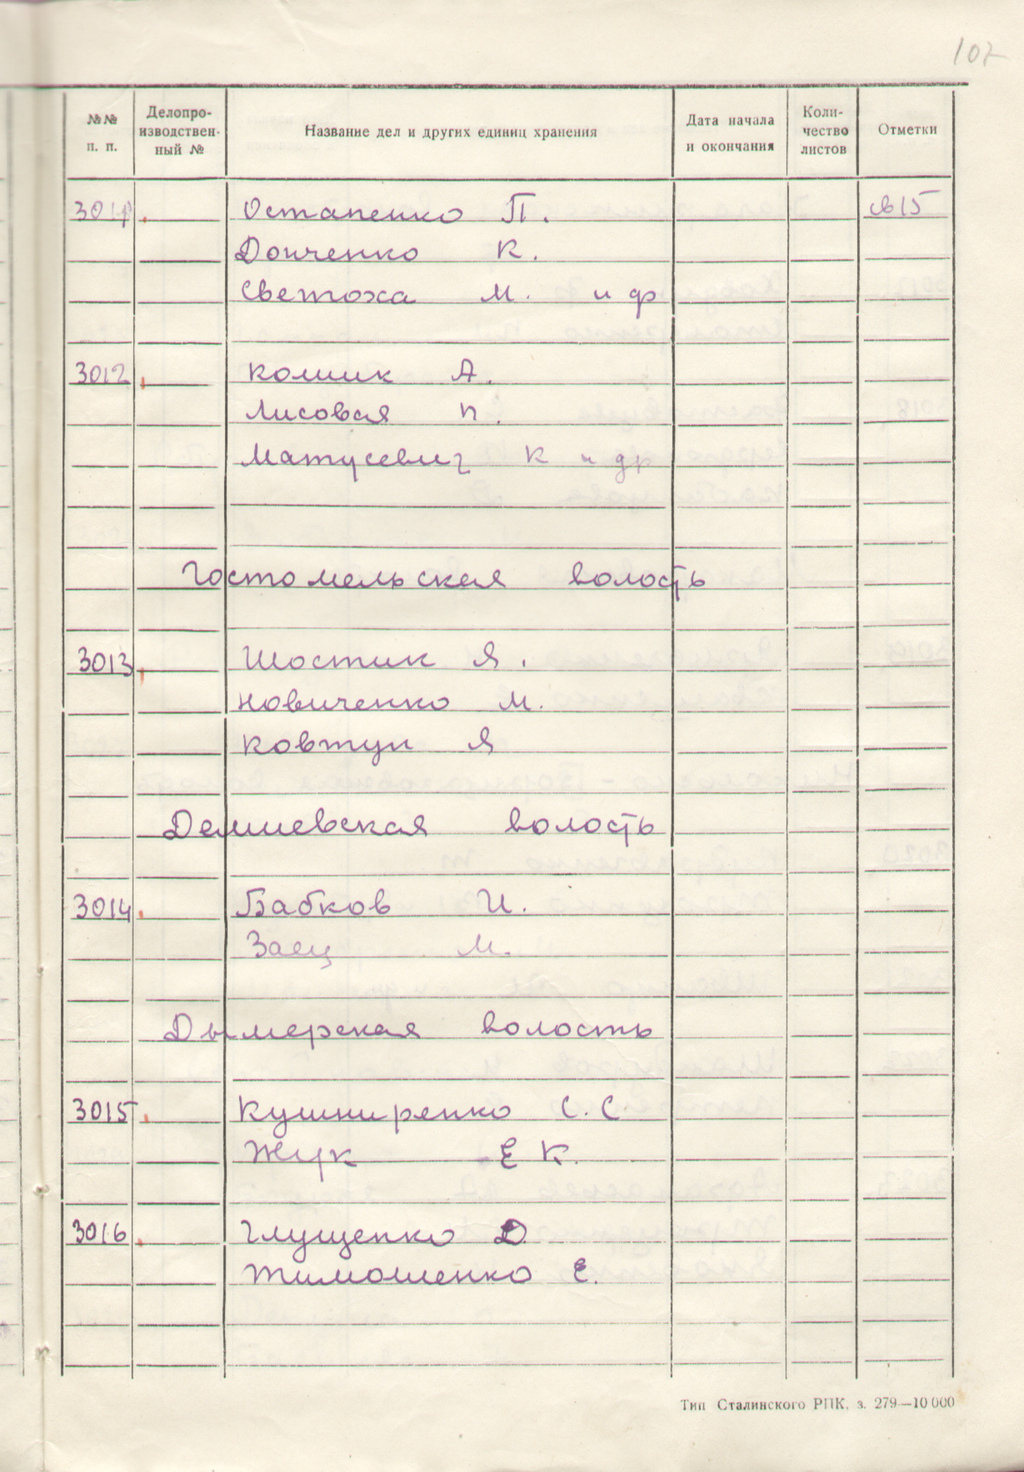 107
№№ п. п. Делопро-изводствен-ный № Название дел и других единиц хранения Дата начала и окончания Коли-чество листов Отметки
3011 Остапенко П. св 15
Донченко К.
Светоха М. и др
3012 Комик А.
Лисовая П.
Матусевич К и др
Гостомельская волость
3013 Шостик Я.
Новиченко М.
Ковтун Я
Демиевская волость
3014 Бабков И.
Заец М.
Дымерская волость
3015 Кушниренко С. С
Жук Е К.
3016 Глущенко Д
Тимошенко Е.
Тип Сталинского РПК, з. 279—10 000